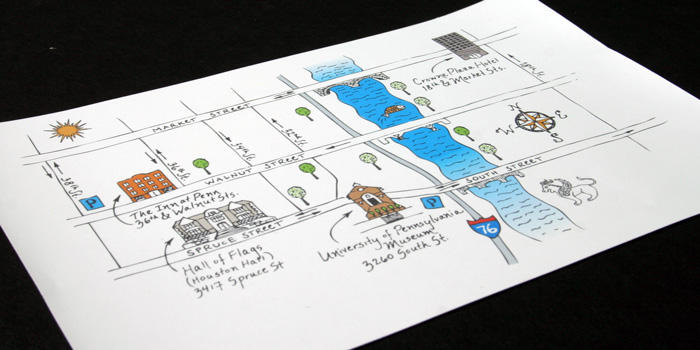 Crowne Plaza Hotel
18th & Market Sts.
MARKET STREET
38th St.
36th St.
34th St.
WALNUT STREET
N
W
E
S
SOUTH STREET
P
The Inn at Penn
36th & Walnut Sts.
SPRUCE STREET
P
University of Pennsylvania
Museum
3260 South St.
76
Hall of Flags
(Houston Hall)
3417 Spruce St